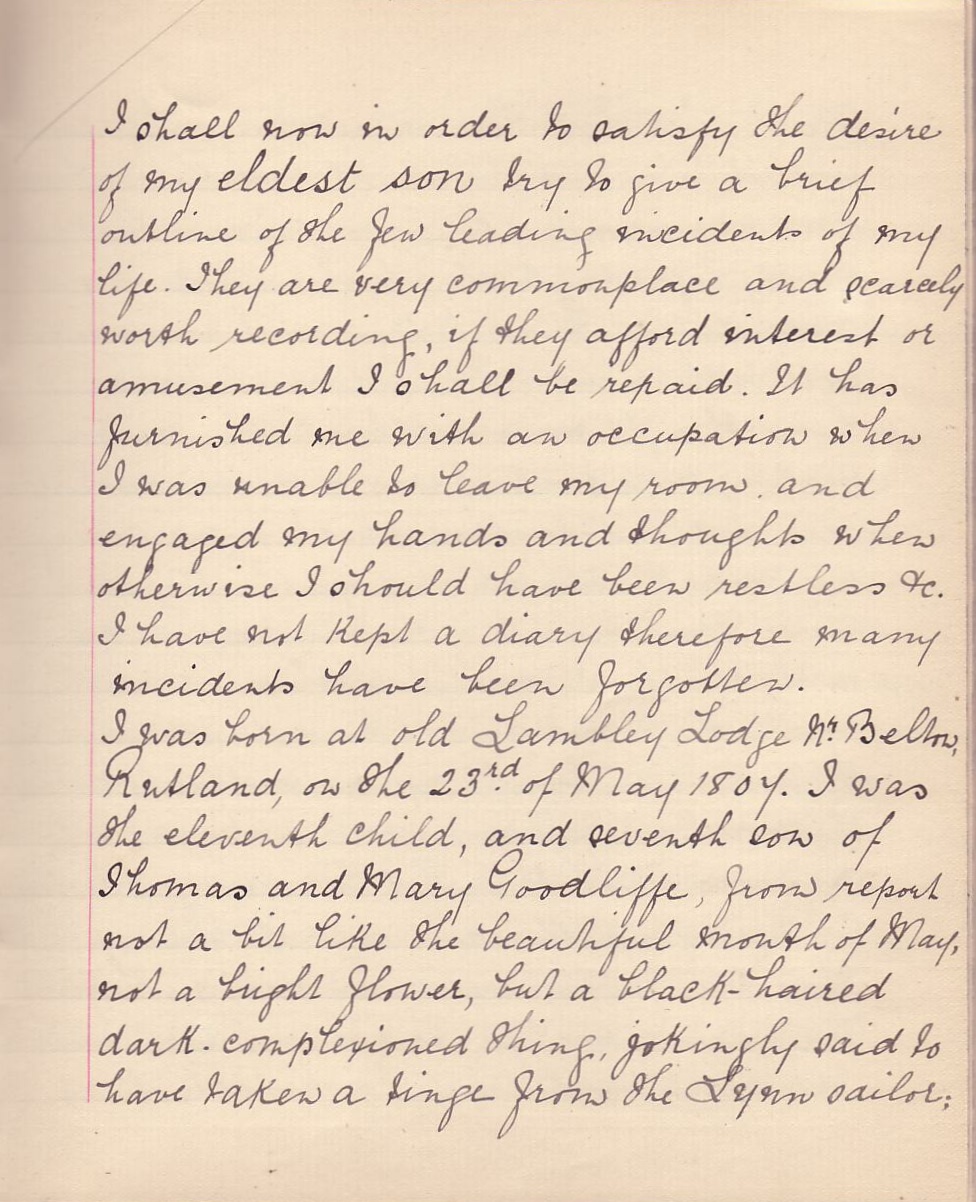 I shall now in order to satisfy the desire
of my eldest son try to give a brief
outline of the few leading incidents of my
life. They are very commonplace and scarcely
worth recording, if they afford interest or
amusement I shall be repaid. It has
furnished me with an occupation when
I was unable to leave my room. and
engaged my hands and thoughts when
otherwise I should have been restless &c.
I have not kept a diary therefore many
incidents have been forgotten.
I was born at old Lambley Lodge Nr. Belton,
Rutland, on the 23rd. of May 1807. I was
the eleventh child, and seventh son of
Thomas and Mary Goodliffe, from report
not a bit like the beautiful month of May,
not a bright flower, but a black-haired
dark-complexioned thing, jokingly said to
have taken a tinge from the Lynn sailor;